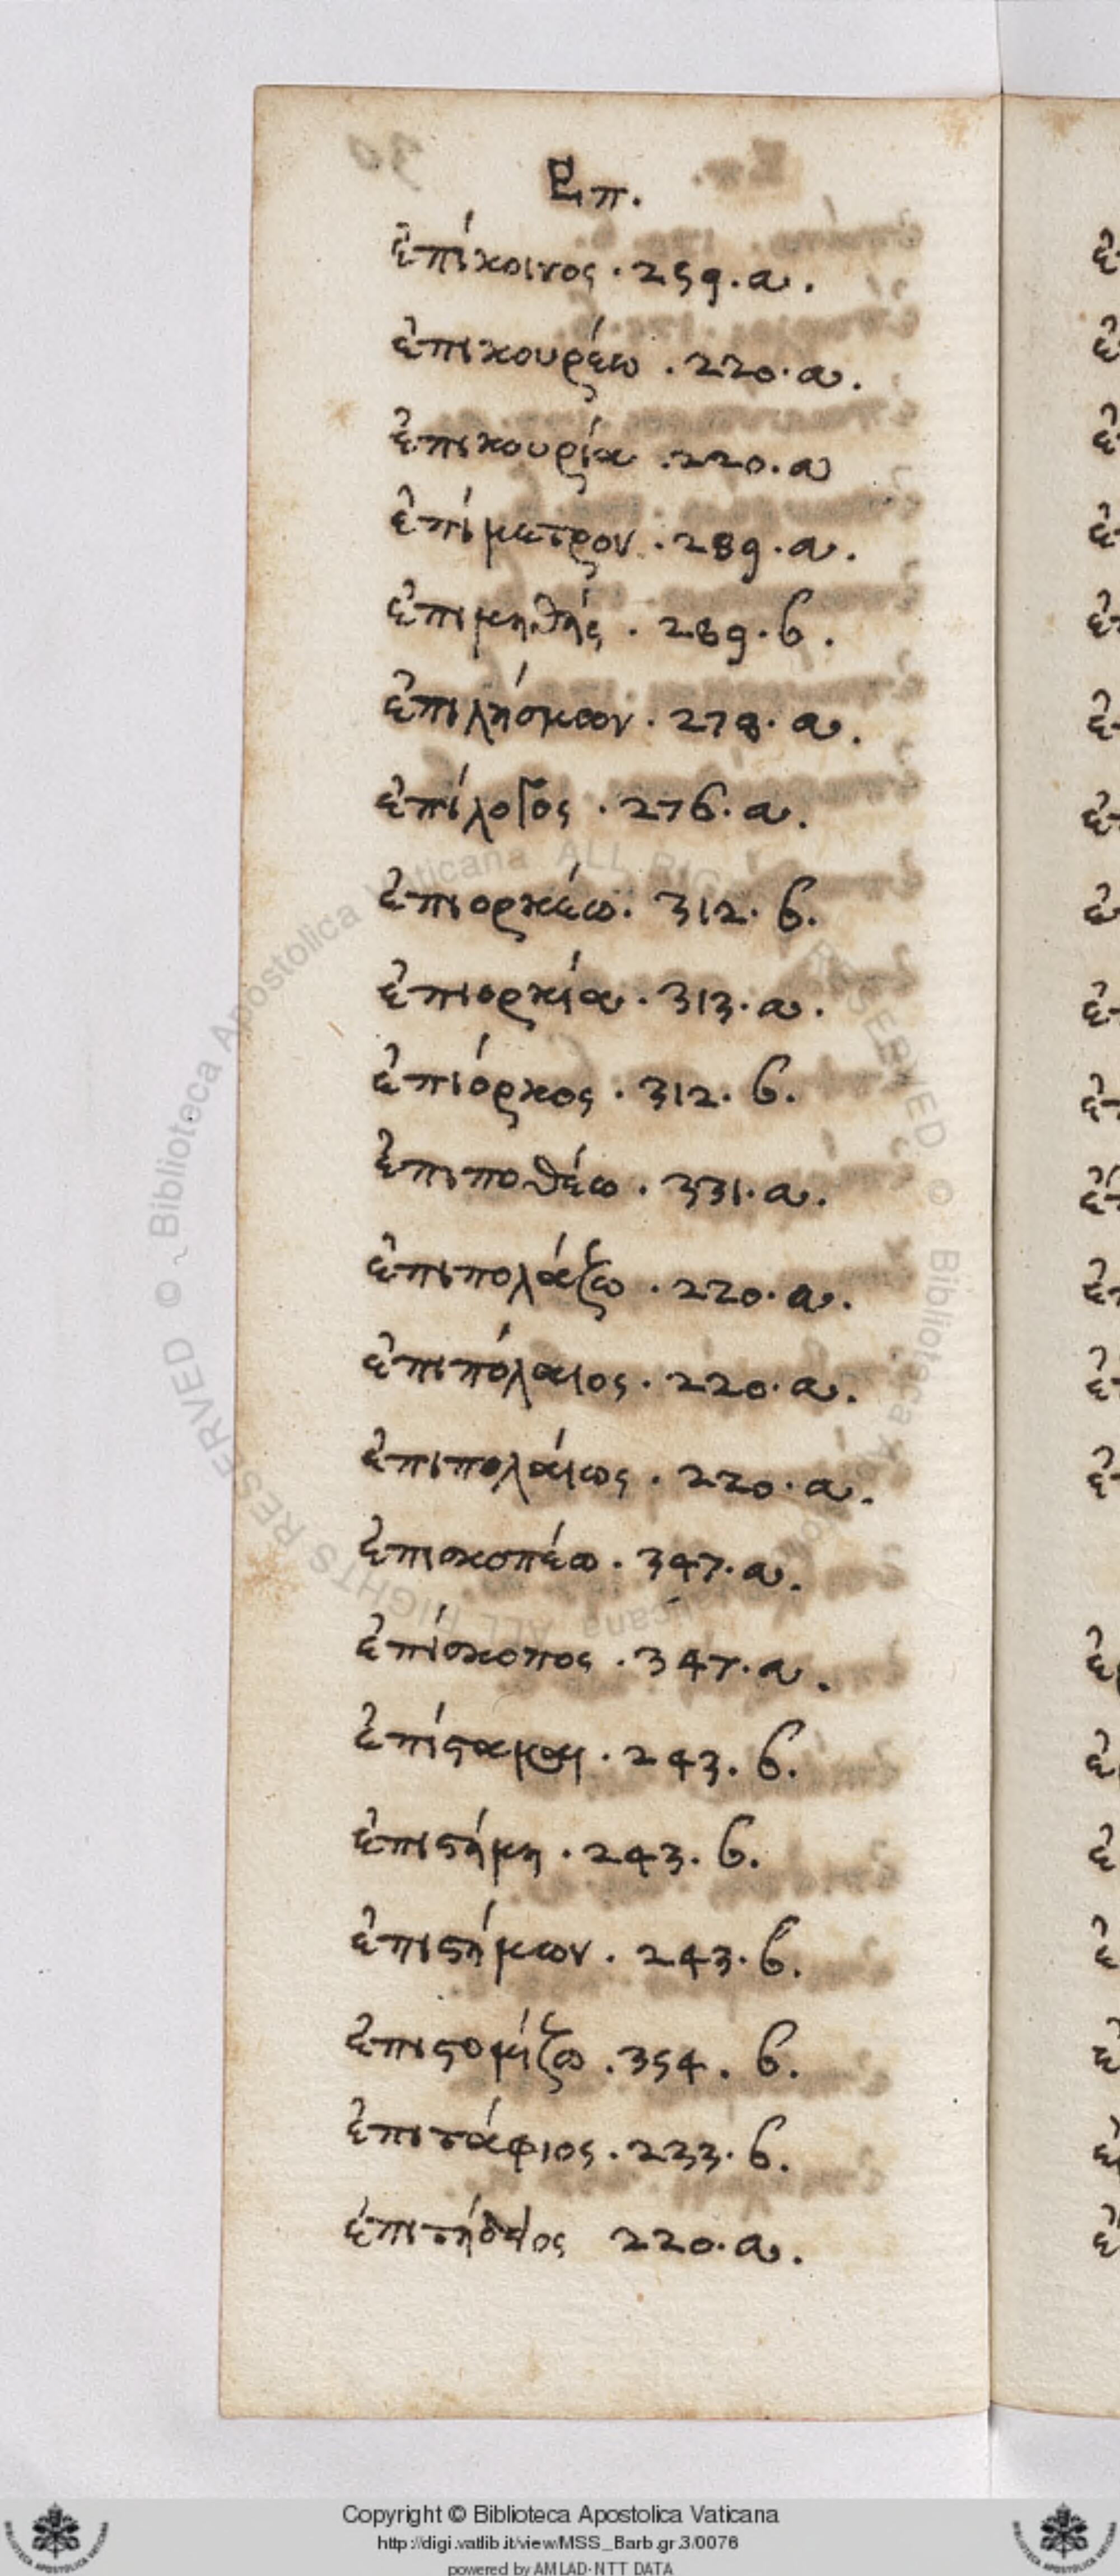 Επ.
ἐπίκοινος · 259 . a .
ἐπικουρέω . 220 . a .
ἐπικουρία . 220 . a
ἐπίμετρον . 289 . a .
ἐπιμηθής . 289 . b .
ἐπιλήσμων . 278 . a .
ἐπίλογος . 276 . a .
ἐπιορκέω . 312 . b .
ἐπιορκία . 313 . a .
ἐπίορκος . 312 . b .
ἐπιποθέω . 331 . a .
ἐπιπολάζω . 220 . a .
ἐπιπόλαιος . 220 . a .
ἐπιπολαίως . 220 . a .
ἐπισκοπέω . 347 . a .
ἐπίσκοπος . 347 . a .
ἐπίϛαμαι . 243 . b .
ἐπιϛήμη . 243 . b .
ἐπιϛήμων . 243 . b .
ἐπιϛομίζω . 354 . b .
ἐπιτάφιος . 233 . b .
ἐπιτήδειος 220 . a .
© Biblioteca Apostolica Vaticana ALL RIGHTS RESERVED © Biblioteca Apostolica Vaticana ALL RIGHTS RESERVED
Copyright © Biblioteca Apostolica Vaticana
http://digi.vatlib.it/view/MSS_Barb.gr.3/0076
powered by AMLAD-NTT DATA